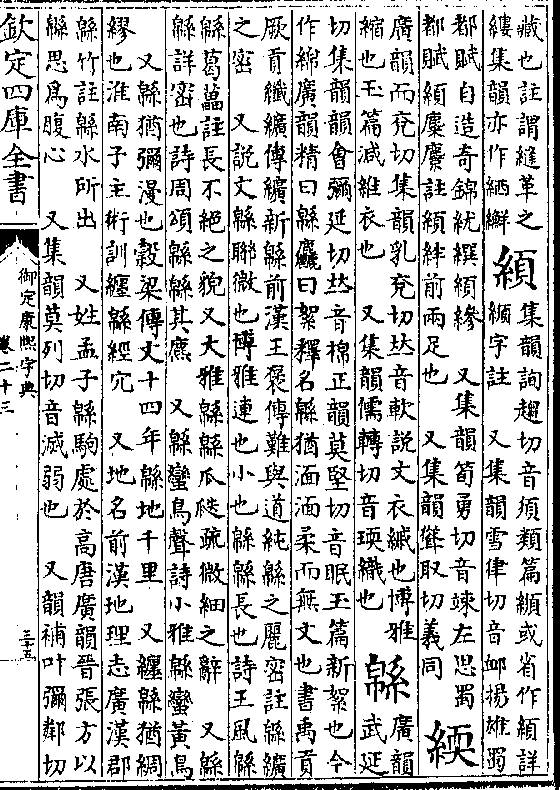 藏也註謂縫革之
縷集韻亦作䋺繲
䋶
集韻詢趨切音須類篇繻或省作䋶詳
緬字註 又集韻雪律切音䘏揚雄蜀
都賦自造奇錦紌繏䋶縿 又集韻筍勇切音竦左思蜀
都賦䋶麋麖註䋶絆前兩足也 又集韻聳取切義同
緛
廣韻而兗切集韻乳兗切𠀤音軟說文衣縅也博雅
縮也玉篇減縫衣也 又集韻儒轉切音瑌織也
緜
廣韻
武延
切集韻韻會彌延切𠀤音棉正韻莫堅切音眠玉篇新絮也今
作綿廣韻精曰緜麤曰絮釋名緜猶湎湎柔而無文也書禹貢
厥貢纖纊傳纊新緜前漢王褒傳難與道純緜之麗密註緜纊
之密 又說文緜聯微也博雅連也小也緜緜長也詩王風緜
緜葛藟註長不絕之貌又大雅緜緜瓜瓞疏微細之辭 又緜
緜詳密也詩周頌緜緜其麃 又緜蠻鳥聲詩小雅緜蠻黃鳥
又緜猶彌漫也穀梁傳文十四年緜地千里 又纏緜猶綢
繆也淮南子主術訓纏緜經宂 又地名前漢地理志廣漢郡
緜竹註緜水所出 又姓孟子緜駒處於高唐廣韻晉張方以
緜思爲腹心 又集韻莫列切音滅弱也 又韻補叶彌鄰切
欽定四庫全書
御定康熙字典
卷二十三
三十五